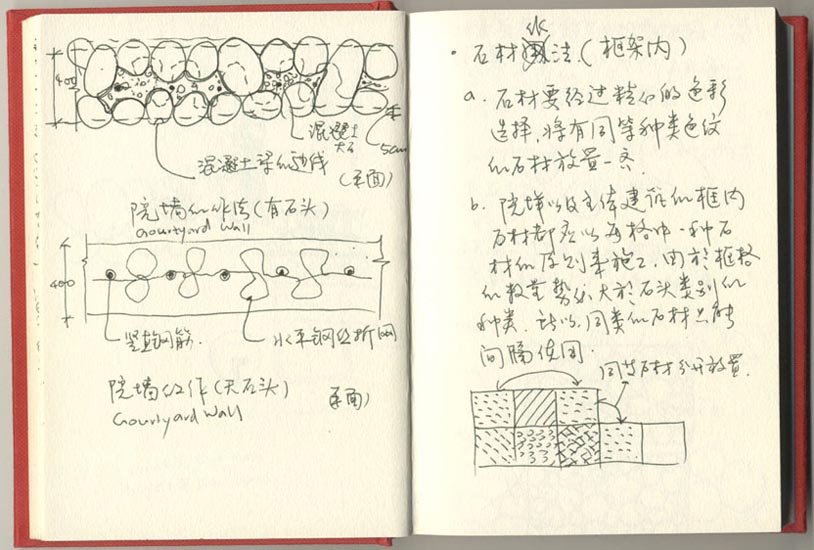 400
混凝土
大石
5cm
混凝土梁的边线
(平面)
院墙的作法(有石头)
Courtyard Wall
400
竖直钢筋.
水平钢丝折网
院墙的作(无石头)
平面)
Courtyard Wall
· 石材 法.(框架内)
a. 石材要经过精心的色彩
选择,将有同等种类色纹
的石材放置一齐.
b. 院墙以及主体建筑的框内
石材都应以每格中一种石
材的原则来施工,由於框格
的数量势必大於石头类别的
种类.所以,同类的石材只能
间隔使用.
同类石材分开放置.